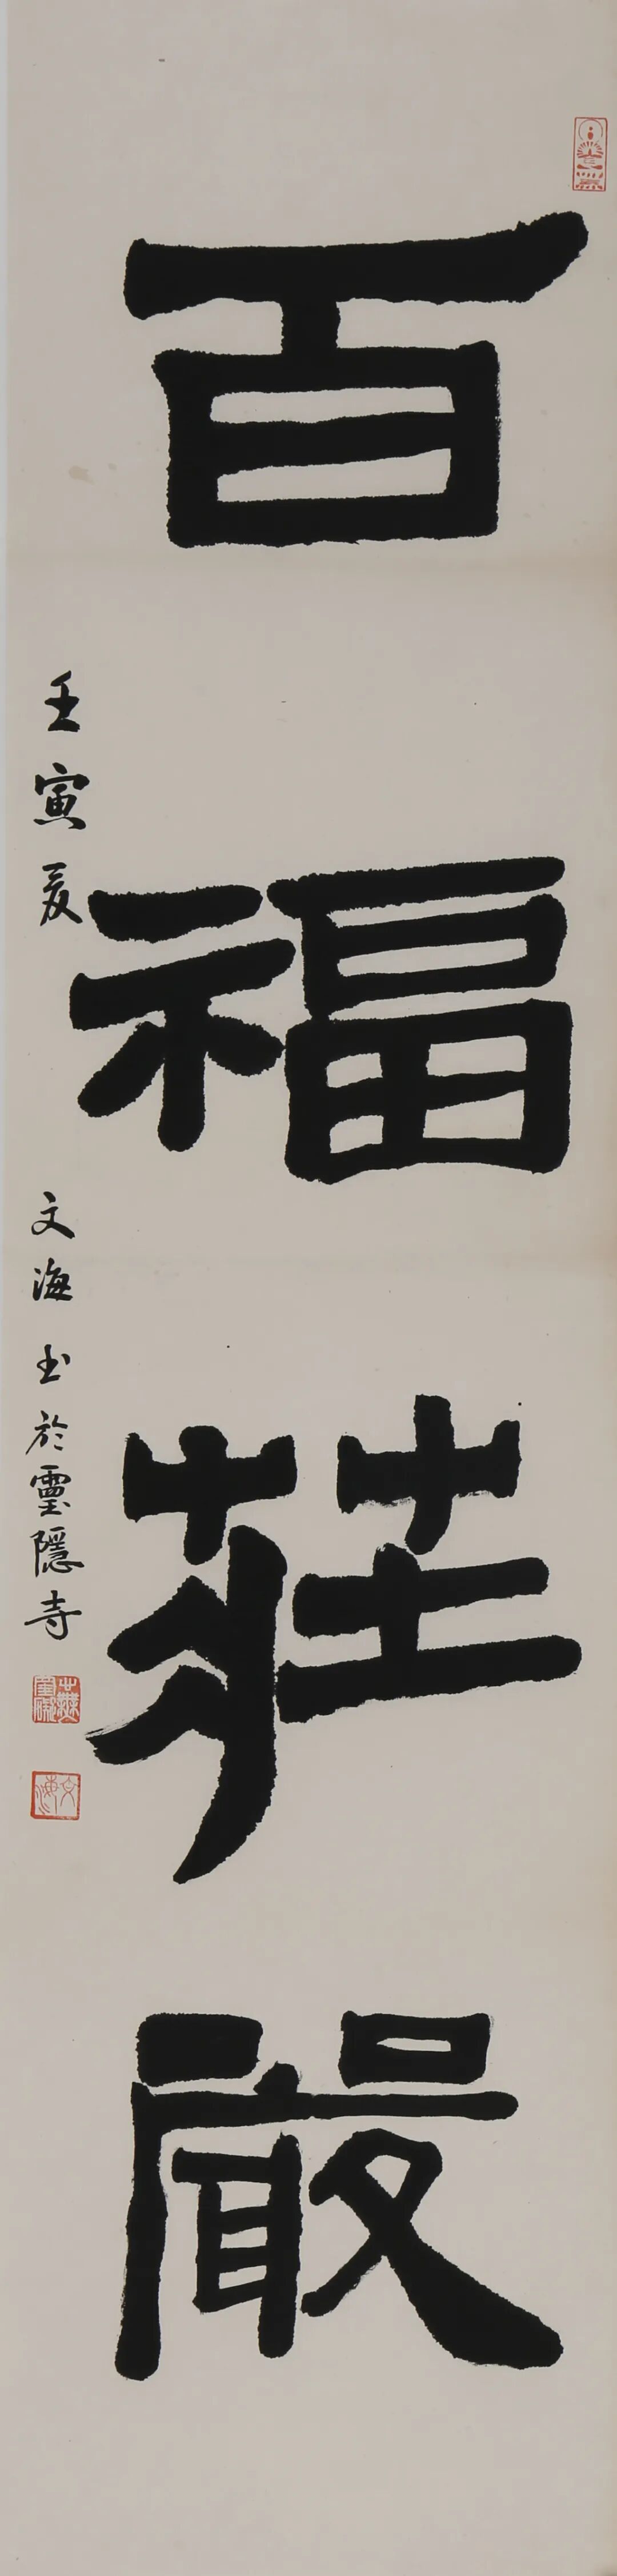 百福莊嚴
壬寅夏 文海書於靈隱寺
文海